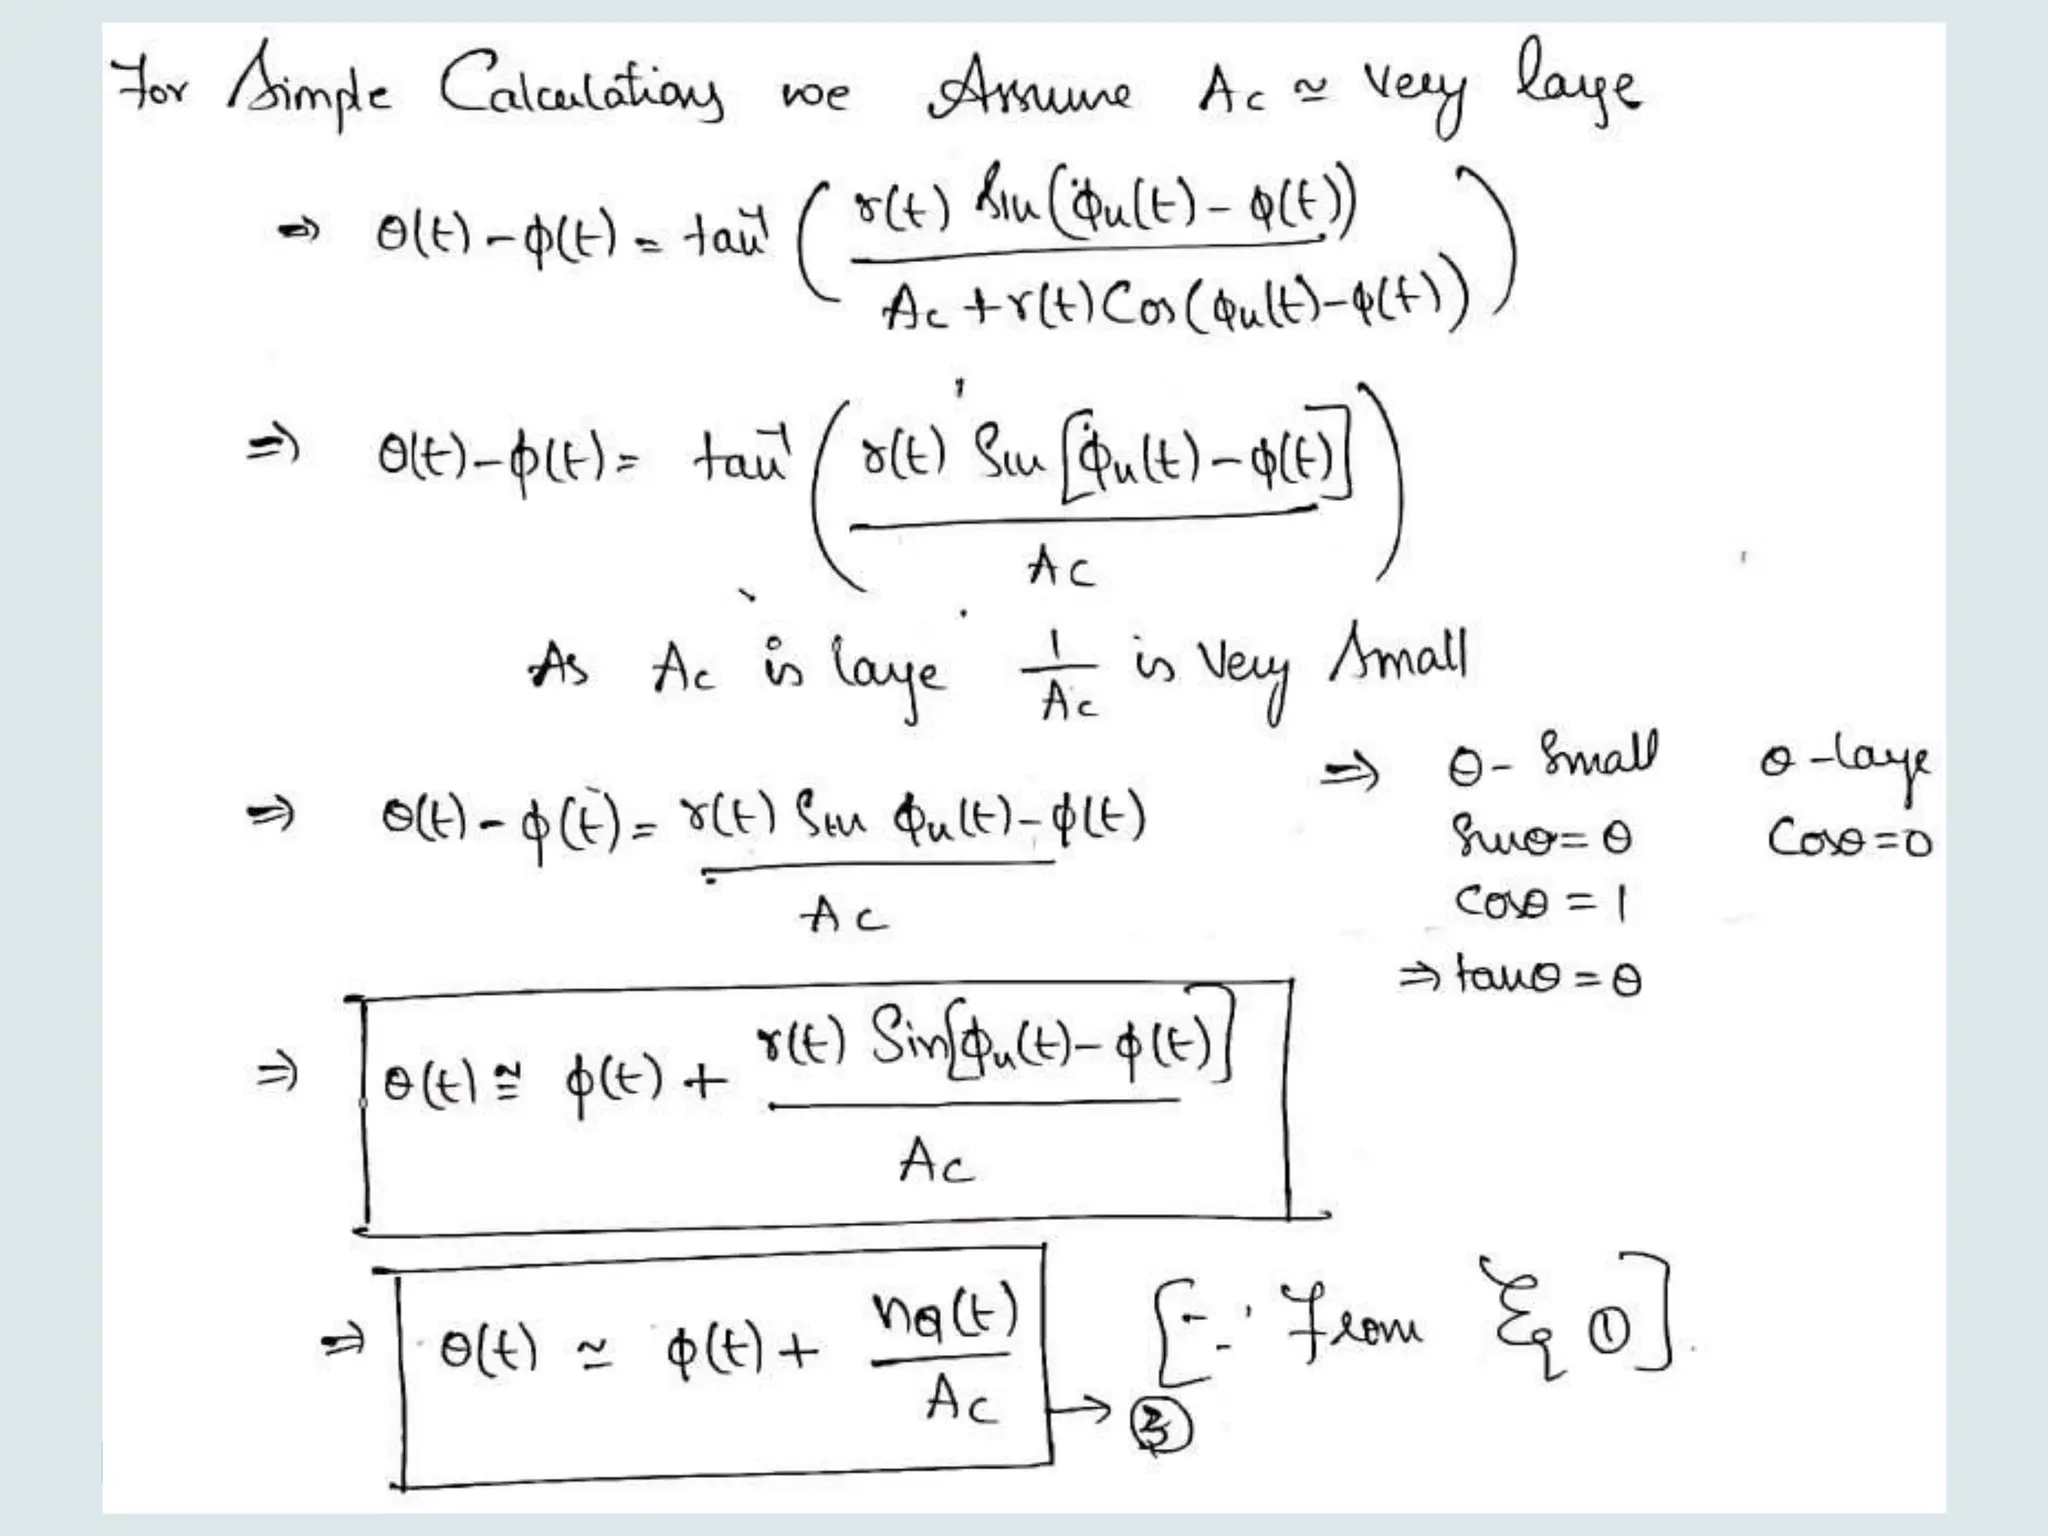 For Simple Calculations we Assume Ac ≃ Very large
⇒ θ(t) - ϕ(t) = tan⁻¹ ( r(t) Sin(ϕu(t) - ϕ(t)) / Ac + r(t) Cos(ϕu(t) - ϕ(t)) )
⇒ θ(t) - ϕ(t) = tan⁻¹ ( r(t) Sin [ϕu(t) - ϕ(t)] / Ac )
As Ac is large 1/Ac is Very Small
⇒ θ - Small θ - large
Sinθ = θ Cosθ = 0
Cosθ = 1
⇒ tanθ = θ
⇒ θ(t) - ϕ(t) = r(t) Sin ϕu(t) - ϕ(t) / Ac
⇒ θ(t) ≅ ϕ(t) + r(t) Sin[ϕu(t) - ϕ(t)] / Ac
⇒ θ(t) ≃ ϕ(t) + nQ(t) / Ac → ③ [∵ From Eq ①].